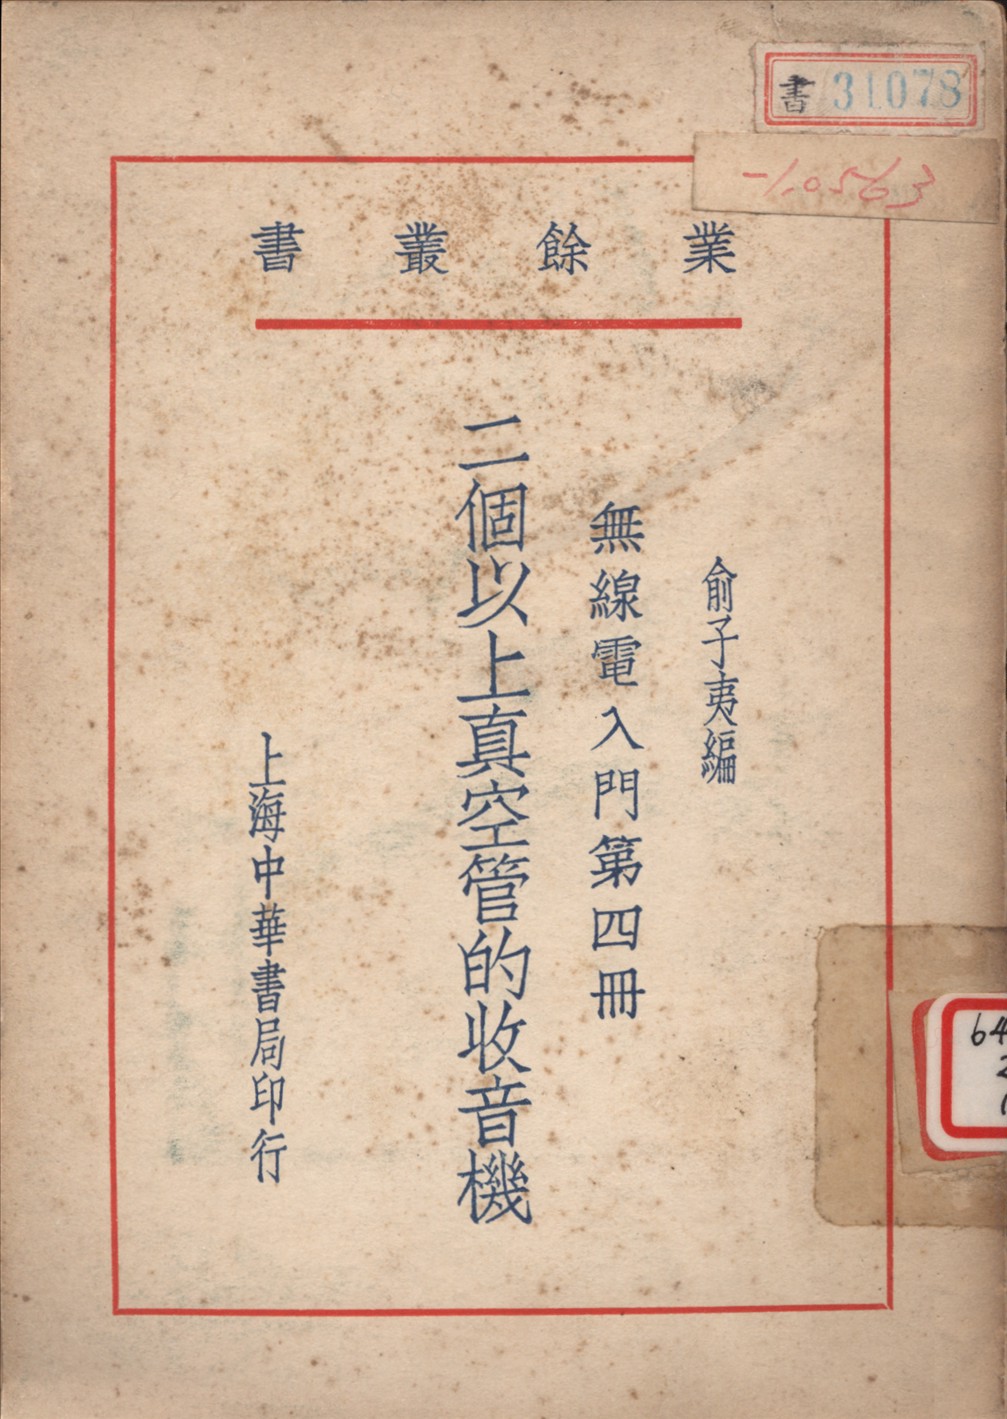 書 31078
-1.0563
業餘叢書
俞子夷編
無線電入門第四冊
二個以上真空管的收音機
上海中華書局印行
64
2